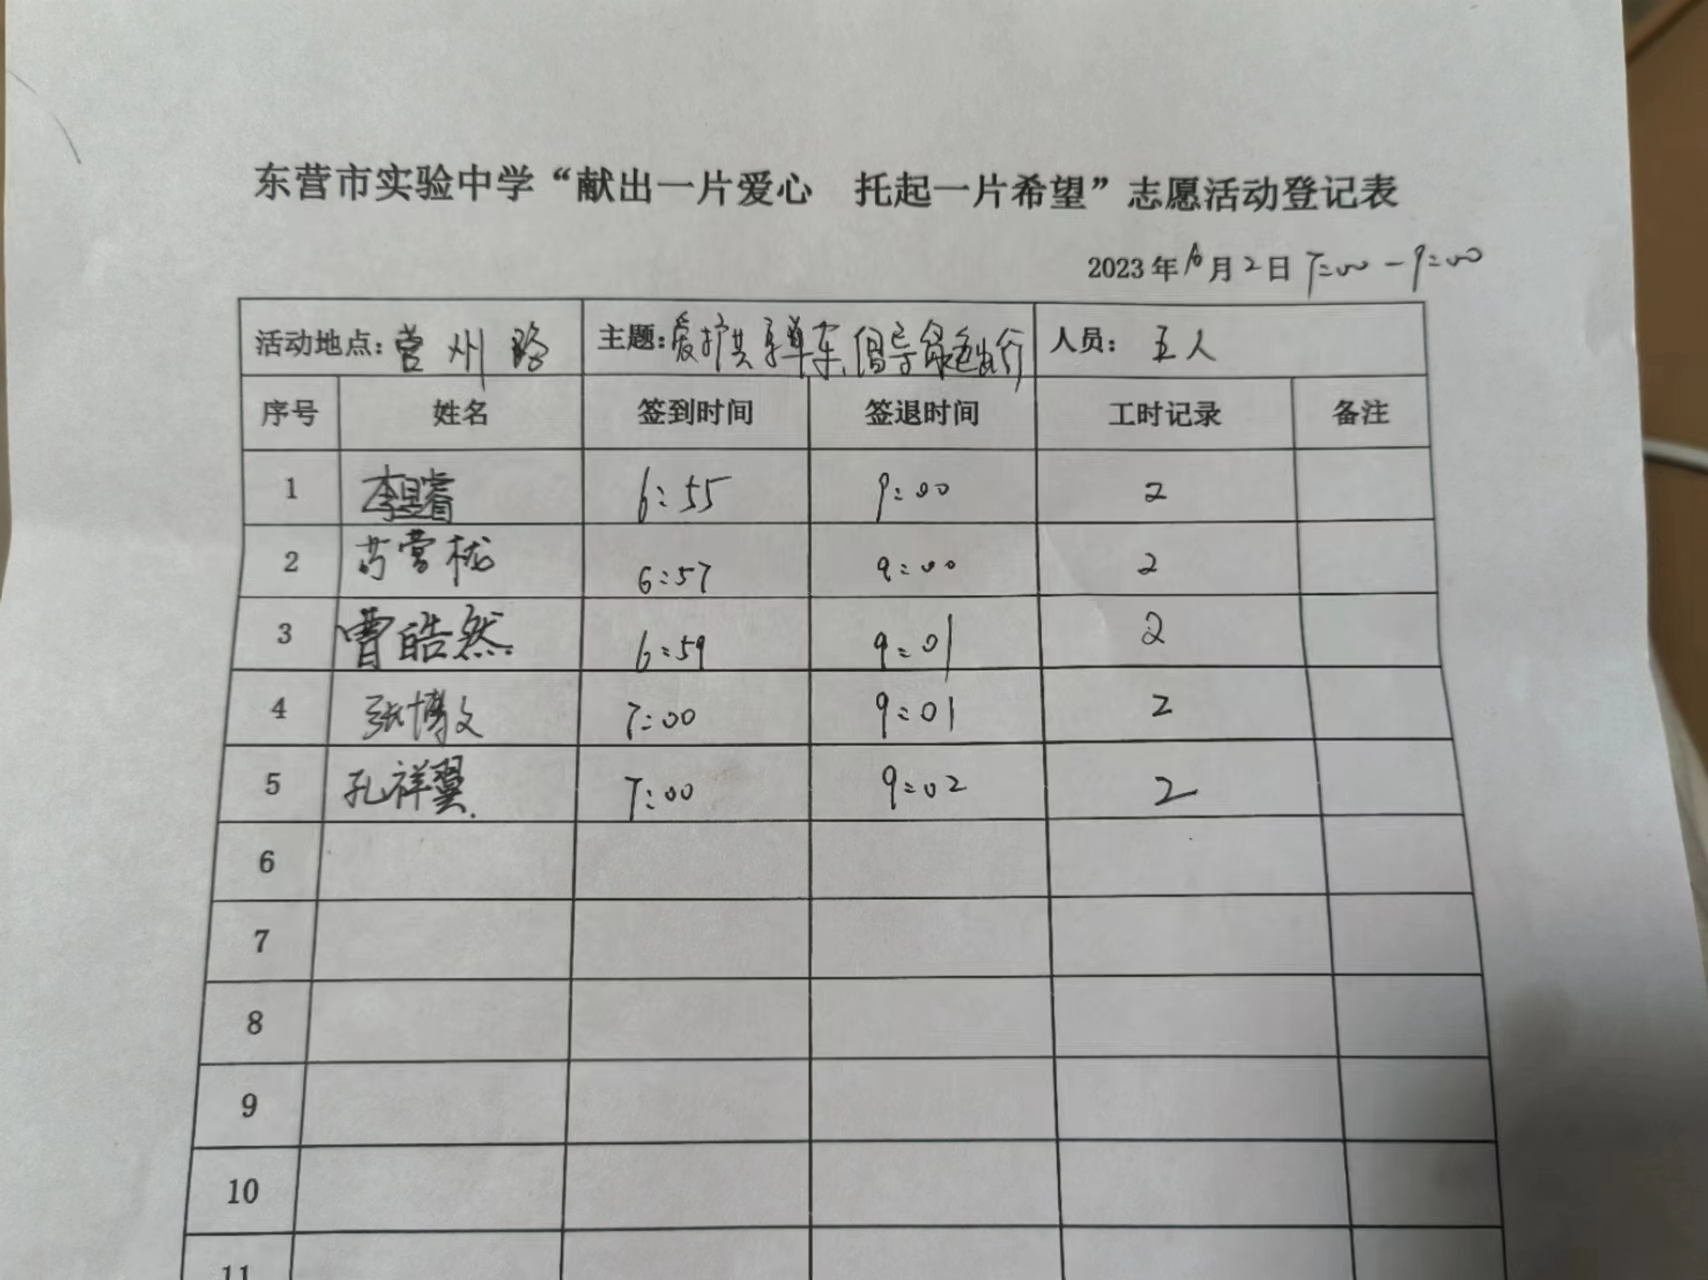 东营市实验中学“献出一片爱心 托起一片希望”志愿活动登记表
2023年10月2日 7:00-9:00
活动地点：营州路 主题：爱护共享单车,倡导绿色出行 人员：五人
序号 姓名 签到时间 签退时间 工时记录 备注
1 李昱睿 6:55 9:00 2
2 营 6:57 9:00 2
3 曹皓然 6:59 9:01 2
4 张博文 7:00 9:01 2
5 孔祥翼 7:00 9:02 2
6
7
8
9
10
11